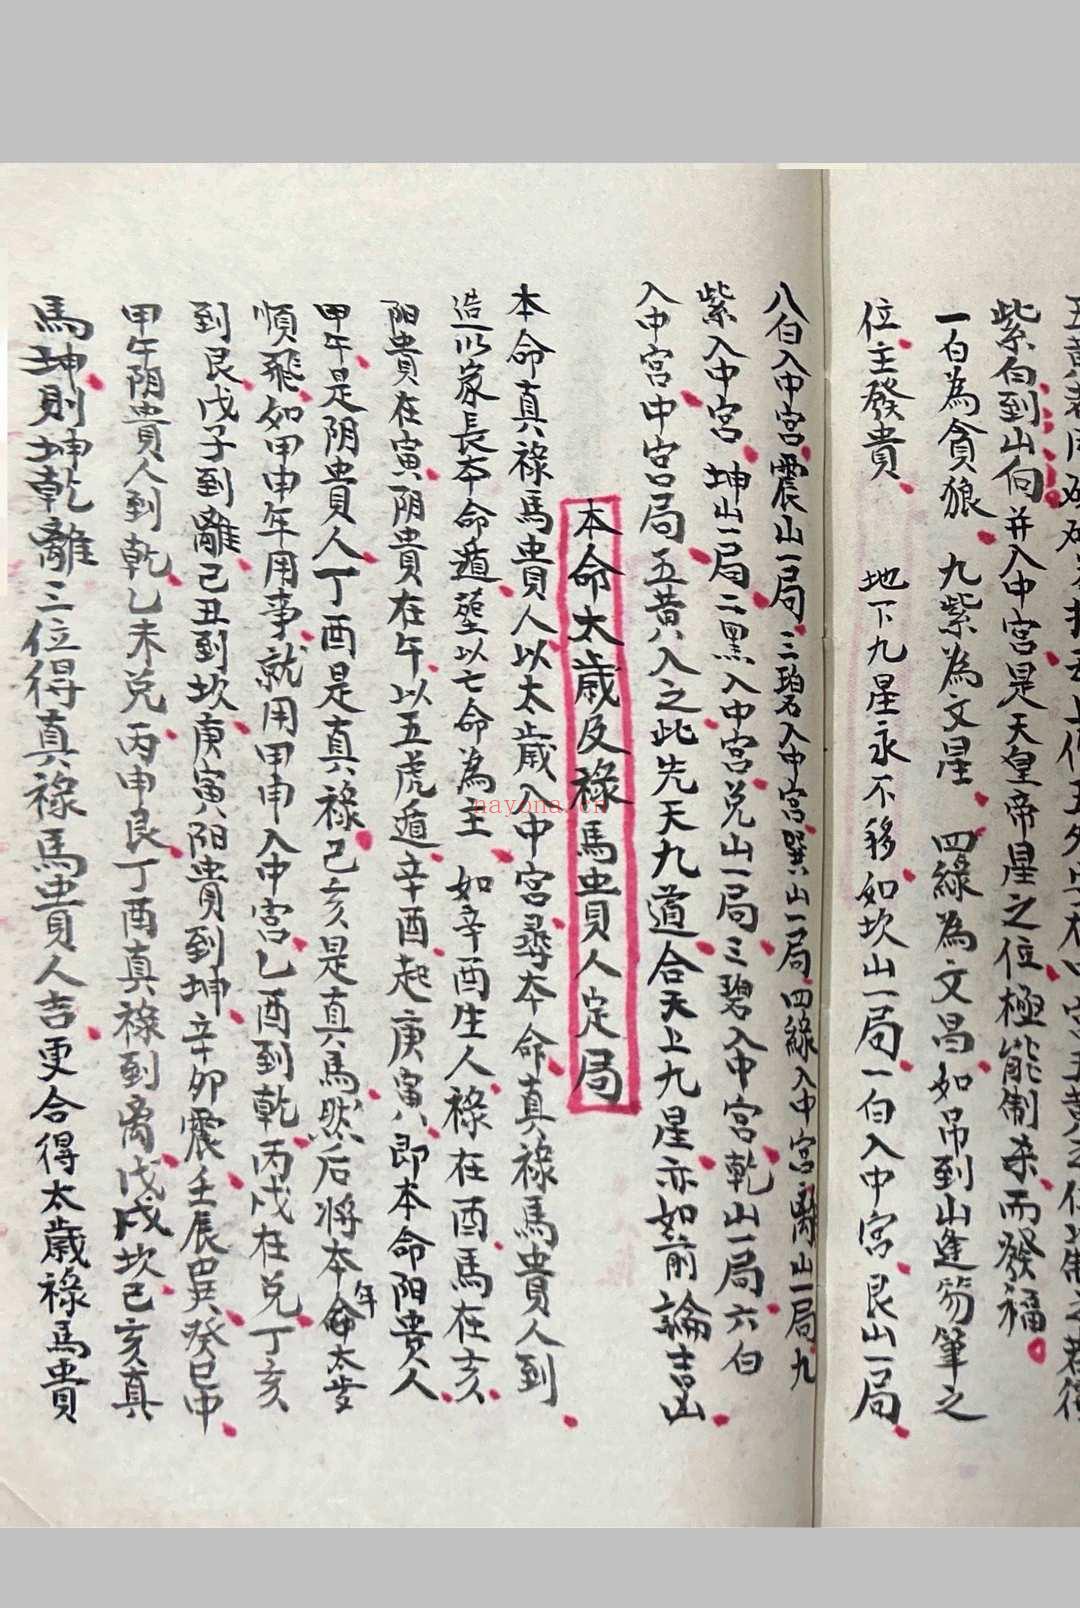 紫白到山向并入中宮是天皇帝星之位極能制杀而發福
一白為貪狼 九紫為文星 四綠為文昌如吊到山逢笏筆之
位主發貴 地下九星永不移如坎山一局一白入中宮艮山一局
八白入中宮震山一局三碧入中宮巽山一局四綠入中宮離山一局九
紫入中宮坤山一局二黑入中宮兑山一局三碧入中宮乾山一局六白
入中宮中宮局五黄入之此先天九道合天上九星亦如前論吉凶
本命太歲及祿馬貴人定局
本命真祿馬貴人以太歲入中宮尋本命真祿馬貴人到
造以家長本命遁塟以亡命為主 如辛酉生人祿在酉馬在亥
阳貴在寅阴貴在午以五虎遁辛酉起庚寅即本命阳貴人
甲午是阴貴人丁酉是真祿己亥是真馬然后将本年太歲
順飛如甲申年用事就用甲申入中宮乙酉到乾丙戌在兑丁亥
到艮戊子到離己丑到坎庚寅阳貴到坤辛卯震壬辰巽癸巳中
甲午阴貴人到乾乙未兑丙申艮丁酉真祿到离戊戌坎己亥真
馬坤則坤乾離三位得真祿馬貴人吉更合得太歲祿馬貴
nayona.cn